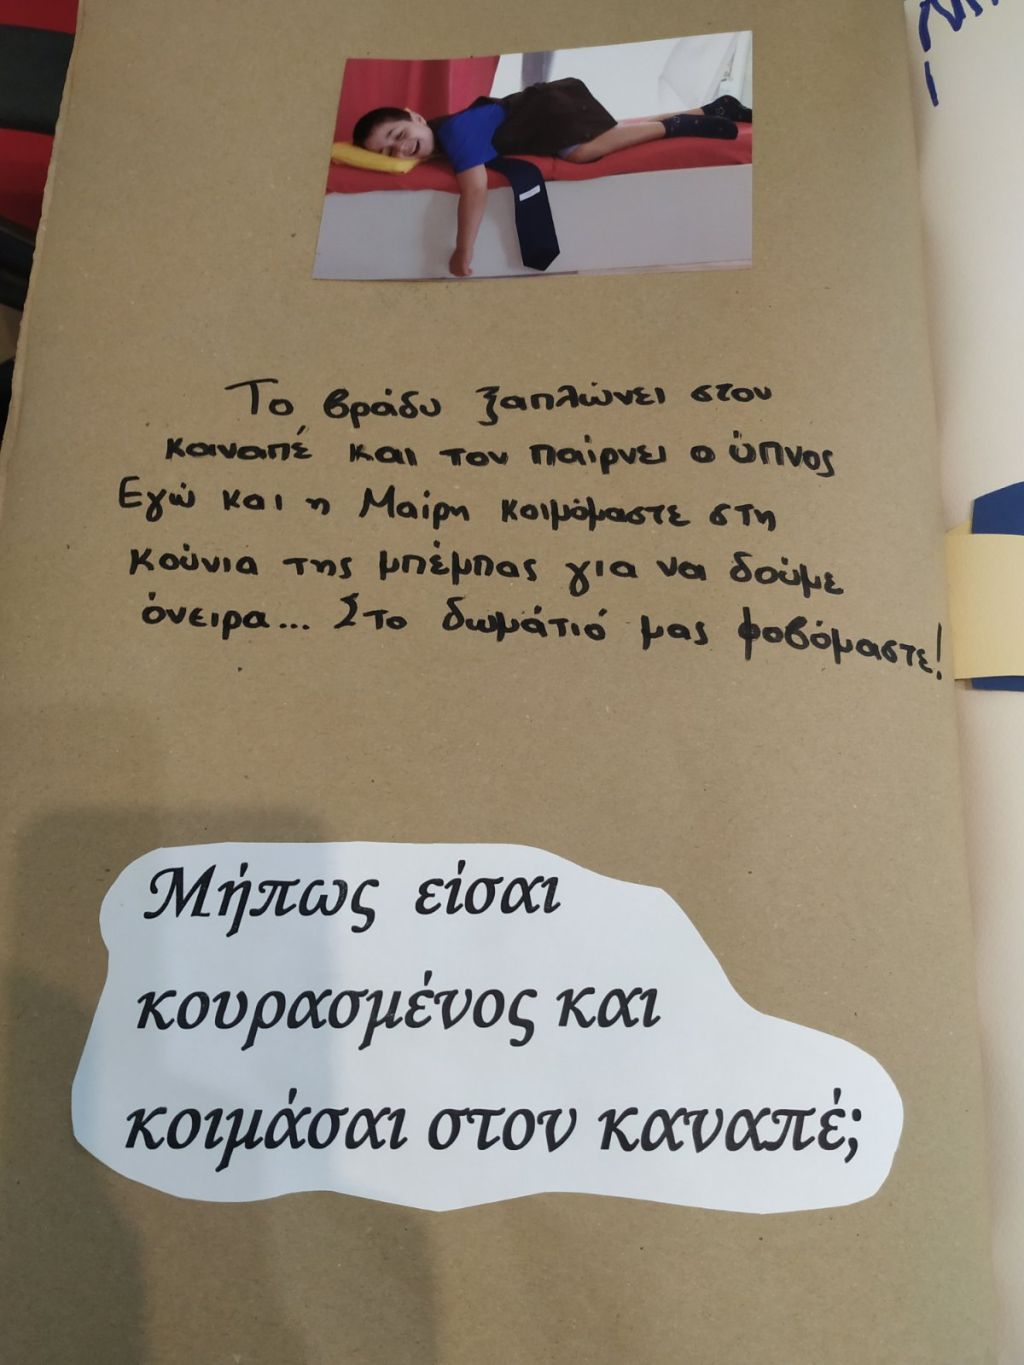 Το βράδυ ξαπλώνει στον
καναπέ και τον παίρνει ο ύπνος
Εγώ και η Μαίρη κοιμόμαστε στη
κούνια της μπέμπας για να δούμε
όνειρα... Στο δωμάτιό μας φοβόμαστε!
Μήπως είσαι
κουρασμένος και
κοιμάσαι στον καναπέ;